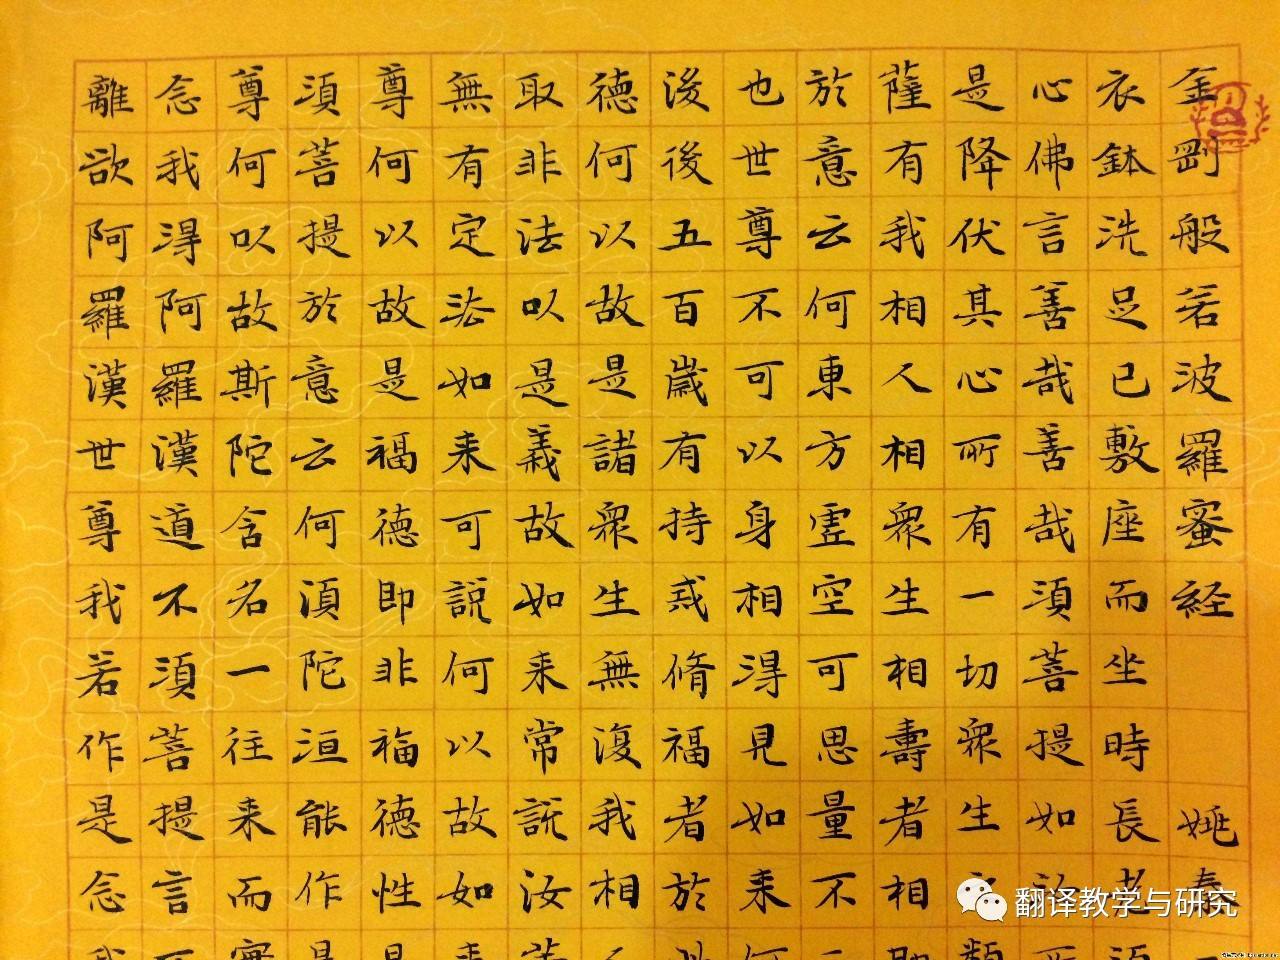 金剛般若波羅蜜経 姚秦
衣鉢洗足已敷座而坐時長老須
心佛言善哉善哉須菩提如汝所
是降伏其心所有一切衆生之類
薩有我相人相衆生相壽者相即
於意云何東方虛空可思量不
也世尊不可以身相得見如来何
後後五百歲有持戒脩福者於此
德何以故是諸衆生無復我相人
取非法以是義故如来常說汝等
無有定法如来可說何以故如
尊何以故是福德即非福德性是
須菩提於意云何須陀洹能作是
尊何以故斯陀含名一往来而實
念我得阿羅漢道不須菩提言不
離欲阿羅漢世尊我若作是念我
翻译教学与研究